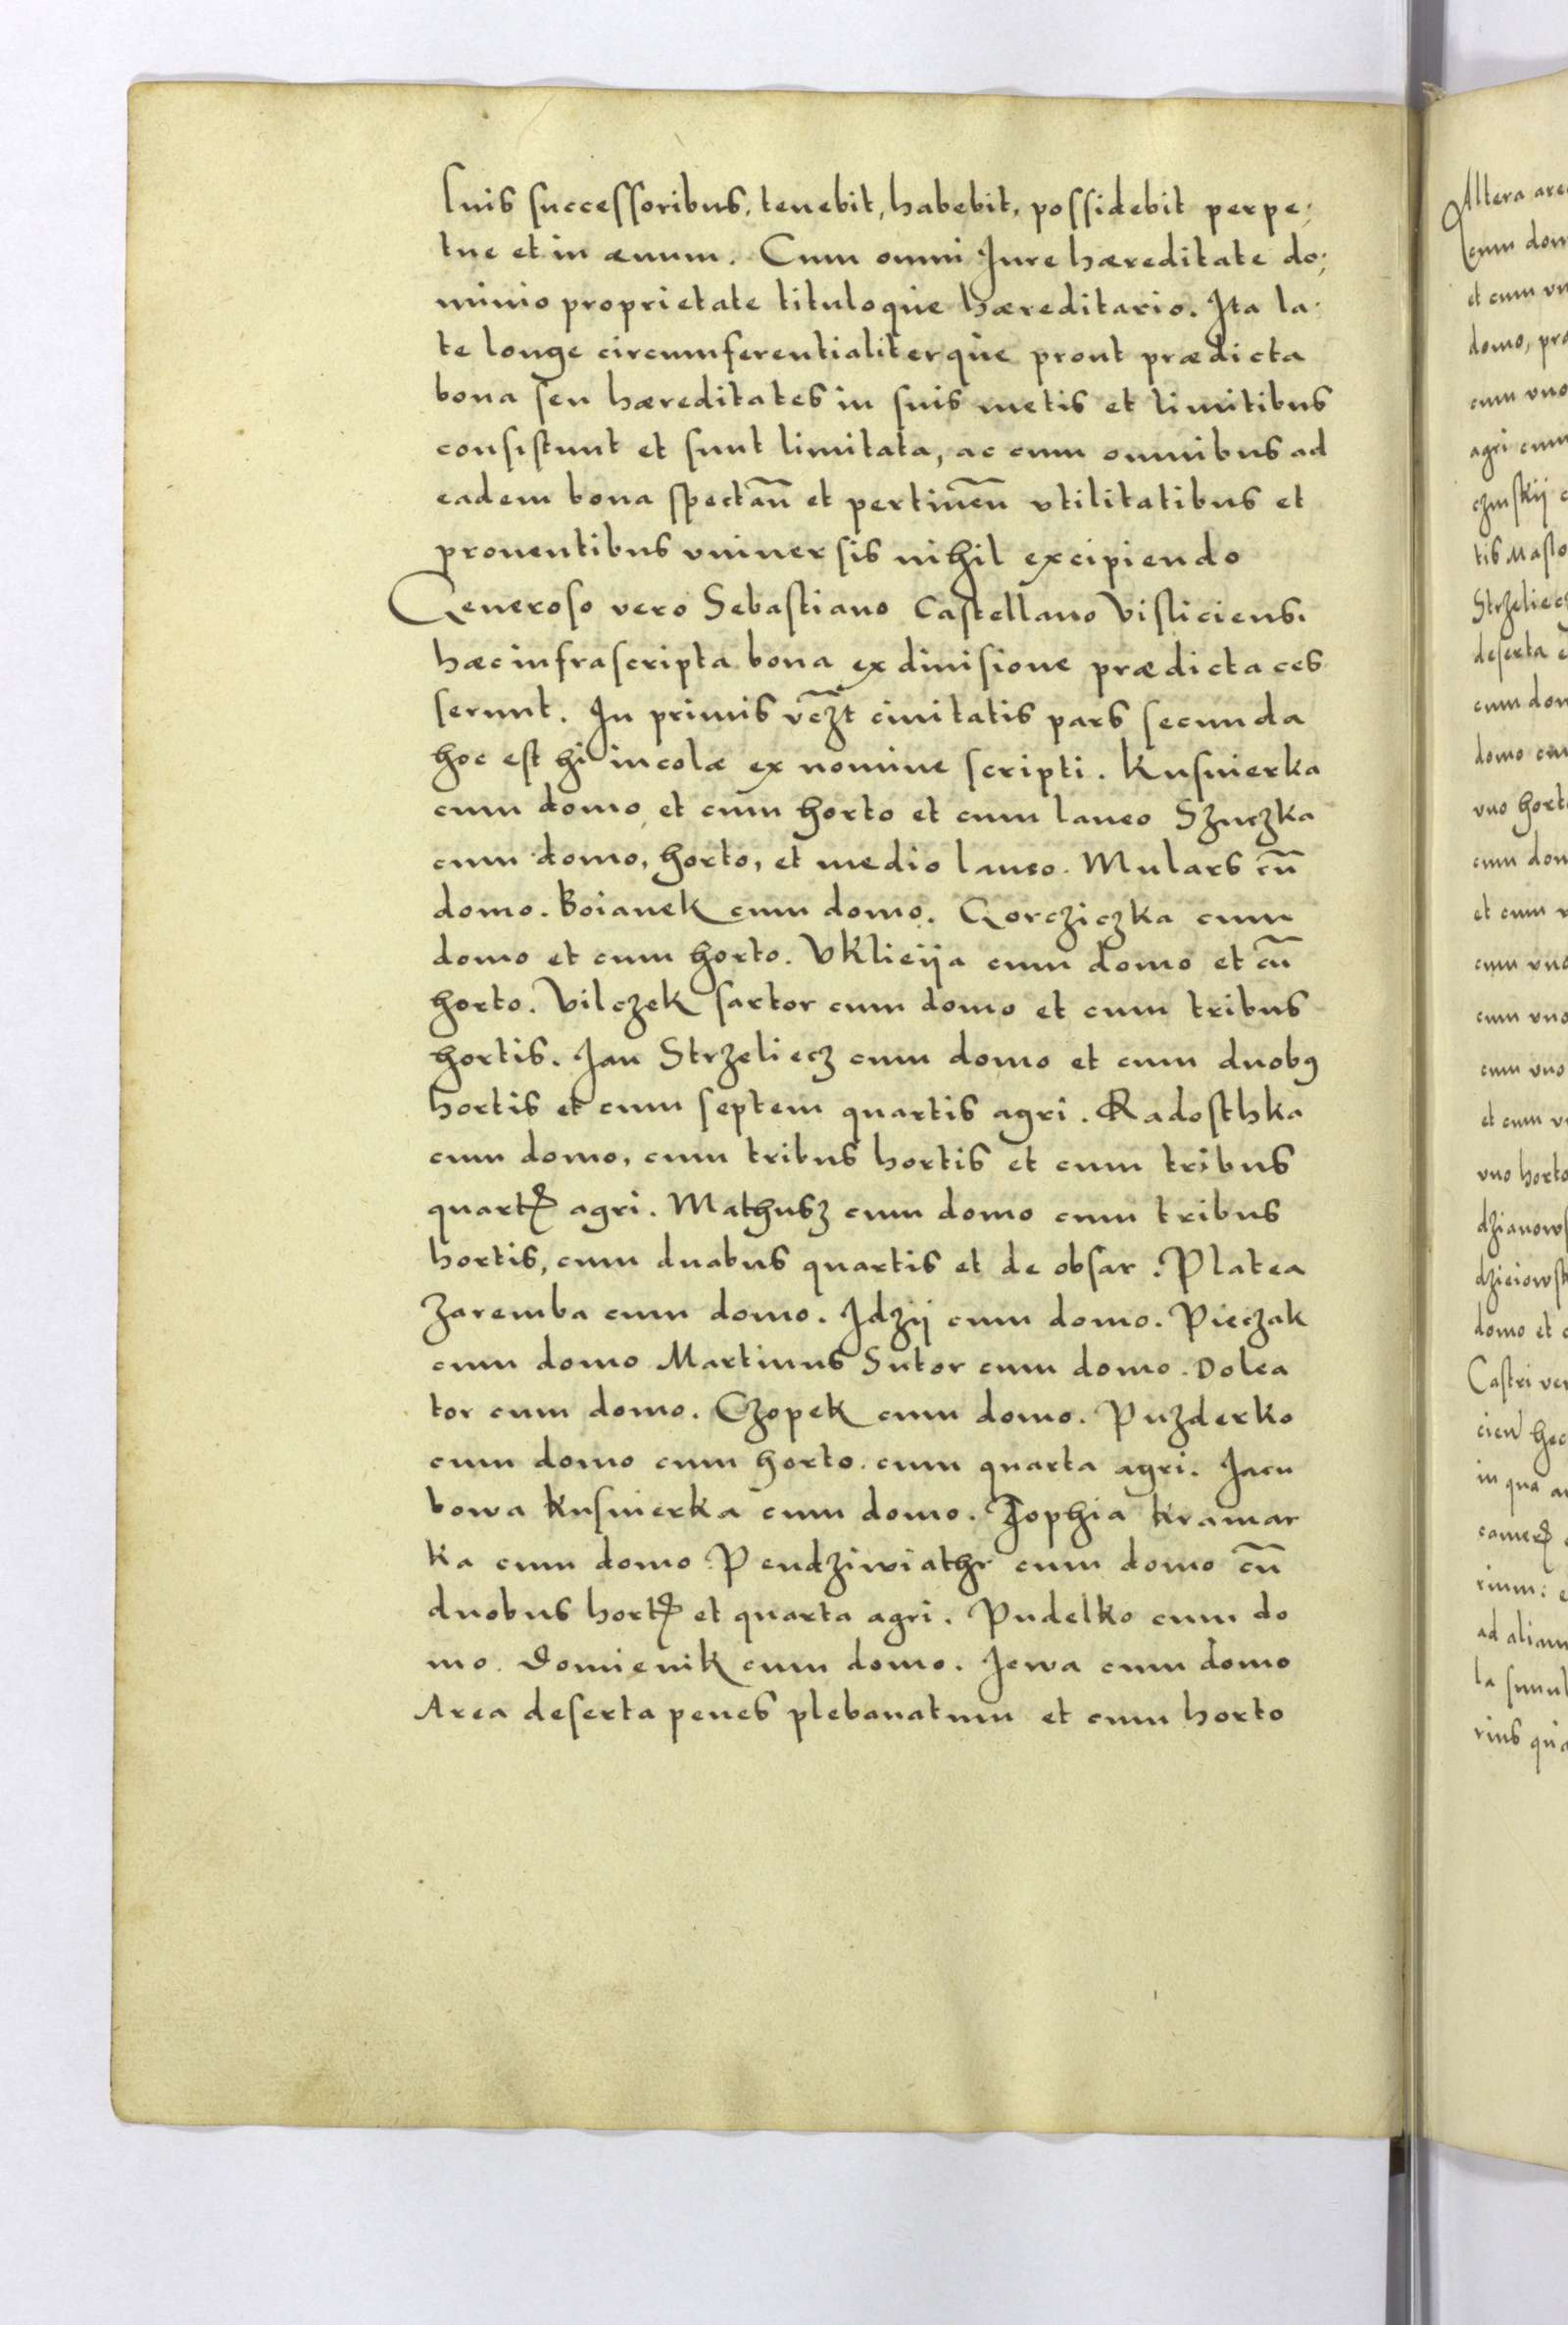 suis successoribus, tenebit, habebit, possidebit perpe;
tue et in æuum. Cum omni Jure hæreditate do;
minio proprietate tituloque hæreditario. Ita la
te longe circumferentialiterque prout prædicta
bona seu hæreditates in suis metis et limitibus
consistunt et sunt limitata, ac cum omnibus ad
eadem bona spectañ et pertineñ vtilitatibus et
prouentibus vniuersis nihil excipiendo
Generoso vero Sebastiano Castellano Visliciens.
hæc infrascripta bona ex diuisione prædicta ces
serunt. In primis vcz̃t ciuitatis pars secunda
hoc est hi incolæ ex nomine scripti. Kusnierka
cum domo et cum horto et cum laneo Szuczka
cum domo, horto, et medio laneo. Mulars cũ
domo. Boianek cum domo. Gorcziczka cum
domo et cum horto. Vklieija cum domo et cũ
horto. Vilczek sartor cum domo et cum tribus
hortis. Jan Strzeliecz cum domo et cum duobꝰ
hortis et cum septem quartis agri. Radosthka
cum domo, cum tribus hortis et cum tribus
quartꝭ agri. Mathusz cum domo cum tribus
hortis, cum duabus quartis et de obsar. Platea
Zaremba cum domo. Idzij cum domo. Pieczak
cum domo Martinus Sutor cum domo. Dolea
tor cum domo. Czopek cum domo. Puzderko
cum domo cum horto. cum quarta agri. Jacu
bowa Kusnierka cum domo. Zophia Kramar
ka cum domo Pendziwiathr cum domo cũ
duobus hortꝭ et quarta agri. Pudelko cum do
mo. Domienik cum domo. Jewa cum domo
Area deserta penes plebanatum et cum horto
Altera are
cum dom
et cum vn
domo, pro
cum vno
agri cum
czinskij c
tis Maslo
Strzeliecz
deserta c
cum dom
domo cum
vno horto
cum dom
et cum v
cum vno
cum vno
cum vno
et cum v
vno horto
dzianows
dzieiowsk
domo et c
Castri ver
cieñ hec
in qua a
camerꝭ
rium: e
ad aliam
la simul
rius qua